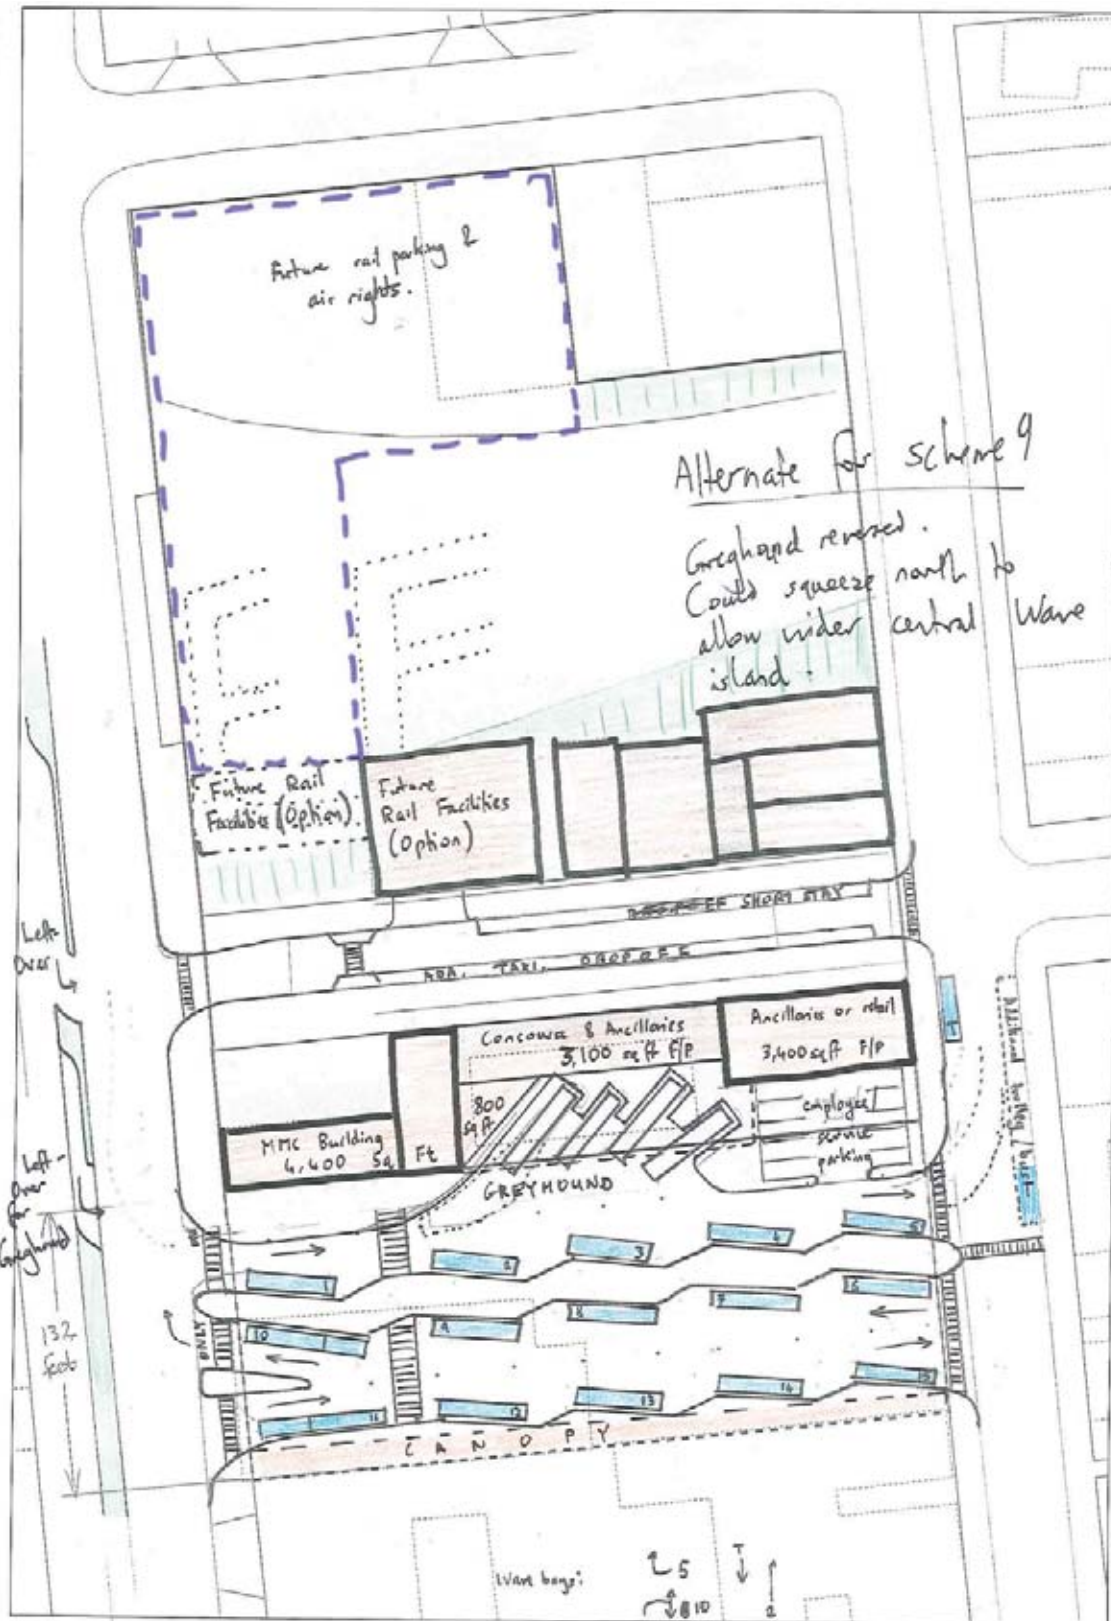 Future rail parking &
air rights.
Alternate for scheme 9
Greghond reversed.
Could squeeze north to
allow wider central Wave
island.
Future Rail
Facilities (Option).
Future
Rail Facilities
(Option)
SHORT STAY
ADA, TAXI, DROPOFF
Left-
Over
Concourse & Ancillaries
3,100 sq ft F/P
Ancillaries or retail
3,400 sq ft F/P
800
sq ft
MMC Building
4,400 Sq Ft
employee
service
parking
GREYHOUND
Left-
Over
for
Greyhound
132
feet
ONLY
1
2
3
4
5
10
9
8
7
6
11
12
13
14
15
CANOPY
Wave bays:
5
T
8 10
2